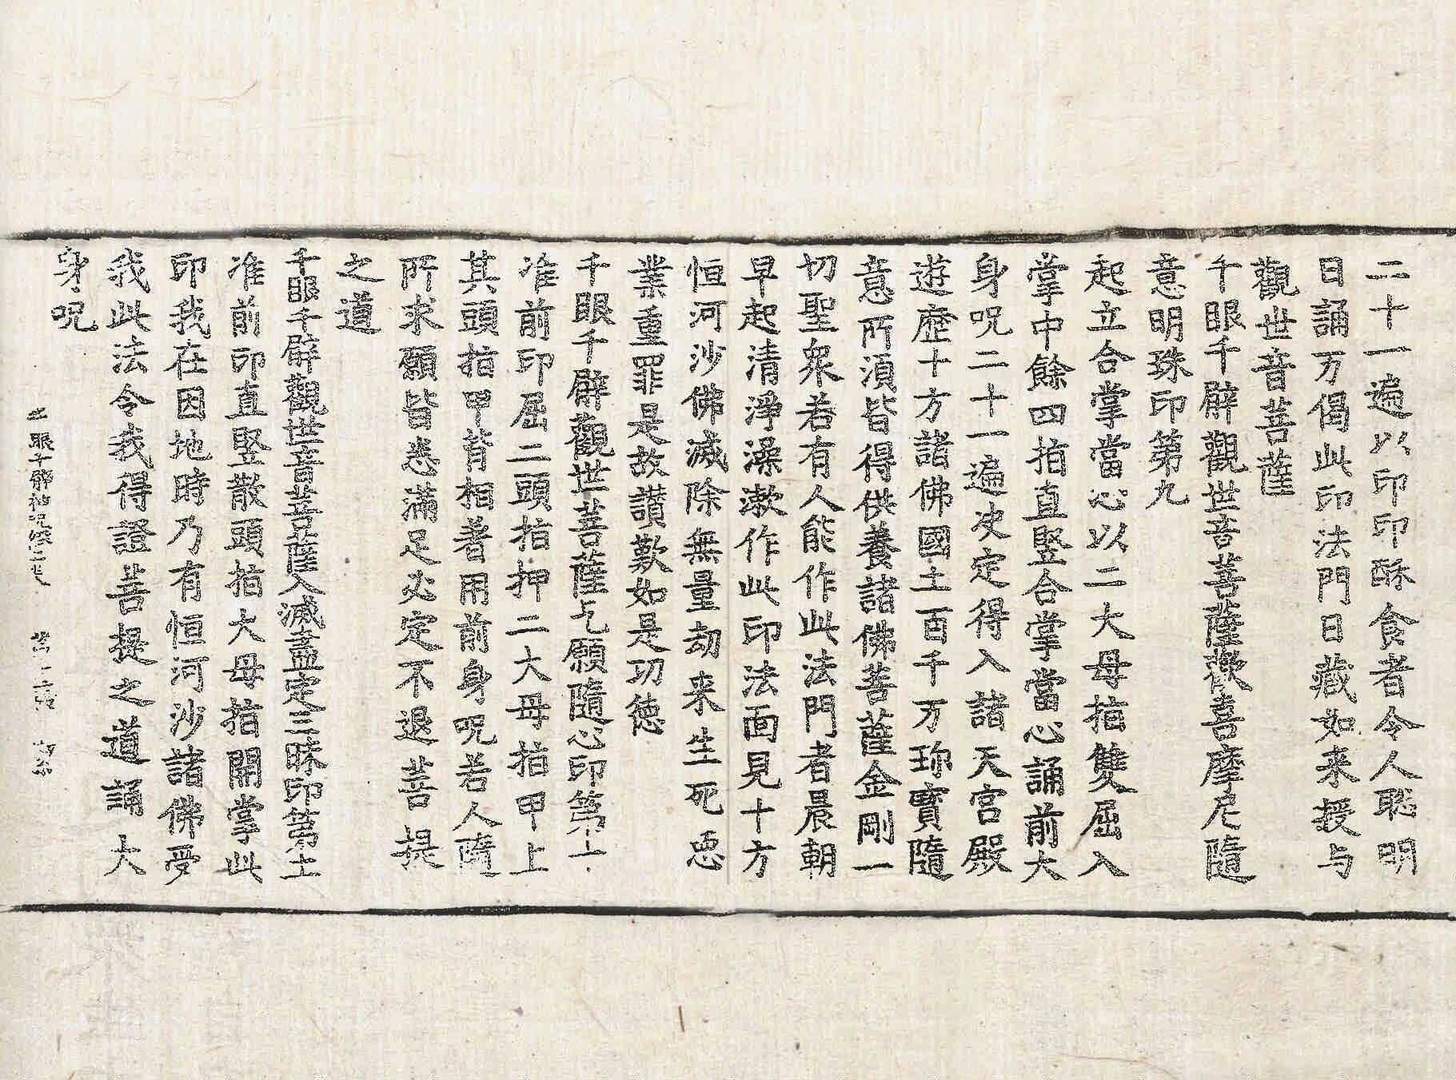 二十一遍以印印酥食者令人聡明
日誦万偈此印法門日藏如来授与
觀世音菩薩
千眼千臂觀世音菩薩歡喜摩尼隨
意明珠印第九
起立合掌當心以二大母指雙屈入
掌中餘四指直竪合掌當心誦前大
身呪二十一遍决定得入諸天宮殿
遊歷十方諸佛國土百千万珎寳隨
意所須皆得供養諸佛菩薩金剛一
切聖衆若有人能作此法門者晨朝
早起清淨澡漱作此印法面見十方
恒河沙佛滅除無量劫来生死惡
業重罪是故讃歎如是功徳
千眼千臂觀世菩薩乞願隨心印第十
准前印屈二頭指押二大母指甲上
其頭指甲背相著用前身呪若人隨
所求願皆悉滿足必定不退菩提
之道
千眼千臂觀世音菩薩入滅盡定三昧印第十一
准前印直竪散頭指大母指開掌此
印我在因地時乃有恒河沙諸佛受
我此法令我得證菩提之道誦大
身呪